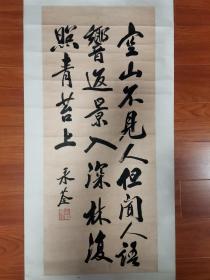 空山不見人但聞人語
響返景入深林復
照青苔上
承荃